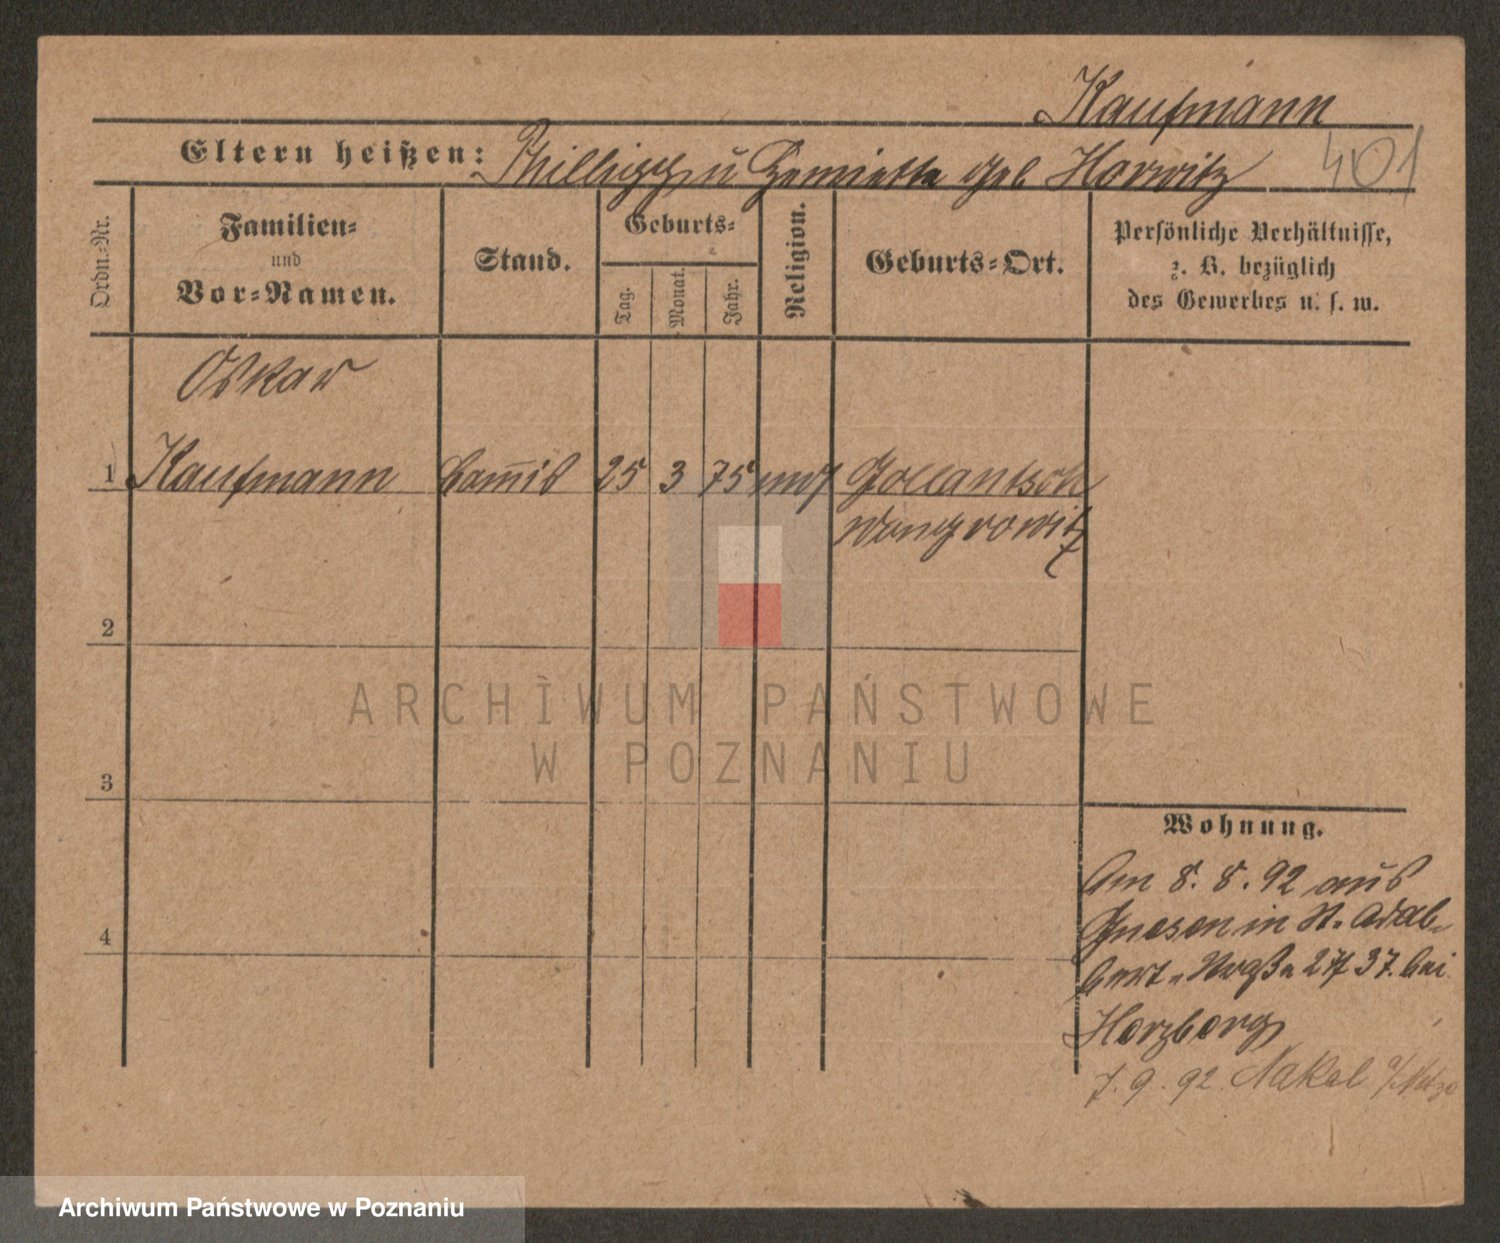 Kaufmann
Eltern heißen: Phillipp u Henriette geb Horwitz
401
Ordn.-Nr.
Familien-
und
Vor-Namen.
Stand.
Geburts-
Tag.
Monat.
Jahr.
Religion.
Geburts-Ort.
Persönliche Verhältnisse,
z. B. bezüglich
des Gewerbes u. s. w.
Oskar
1 Kaufmann Com̅is 25 3 75 mos Gollantsch
Wongrowitz
2
3
4
Wohnung.
Am 8. 8. 92 aus
Gnesen in St. Adal-
bert-Straße 27/37. bei
Herzberg
7. 9. 92. Nakel a/Netze
ARCHIWUM PAŃSTWOWE
W POZNANIU
Archiwum Państwowe w Poznaniu